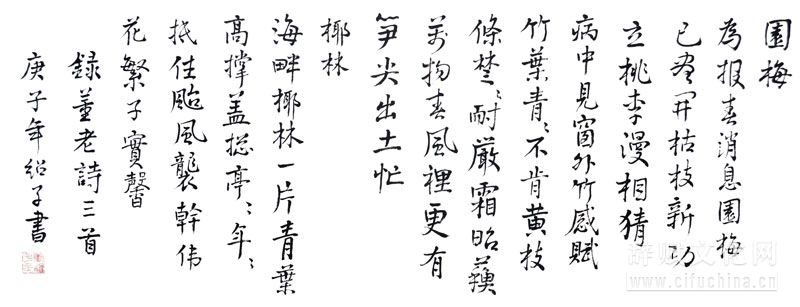 園梅
為报春消息園梅
已尽开枯枝新功
立桃李漫相猜
病中見窗外竹感賦
竹葉青〻不肯黄枝
條楚〻耐嚴霜昭蘇
萬物春風裡更有
笋尖出土忙
椰林
海畔椰林一片青葉
高撑盖總亭〻年〻
抵住颱風襲幹伟
花繁子實馨
録董老詩三首
庚子年紹子書
辞赋文化网
www.cifuchina.com